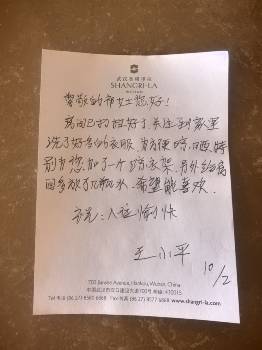 武汉香格里拉
SHANGRI-LA
尊敬的女士您好!
房间已打扫好了,关注到家里
洗了好多的衣服,为方便晾晒,特
别为您加了一个晒衣架,另外给房
间多放了几瓶水,希望能喜欢
祝:入住愉快
王小平
10/2
700 Jianshe Avenue, Hankou, Wuhan, China
中国武汉市汉口建设大道700号 邮编 430015
Tel 电话 (86 27) 8580 6868 Fax 传真 (86 27) 8577 6868 www.shangri-la.com